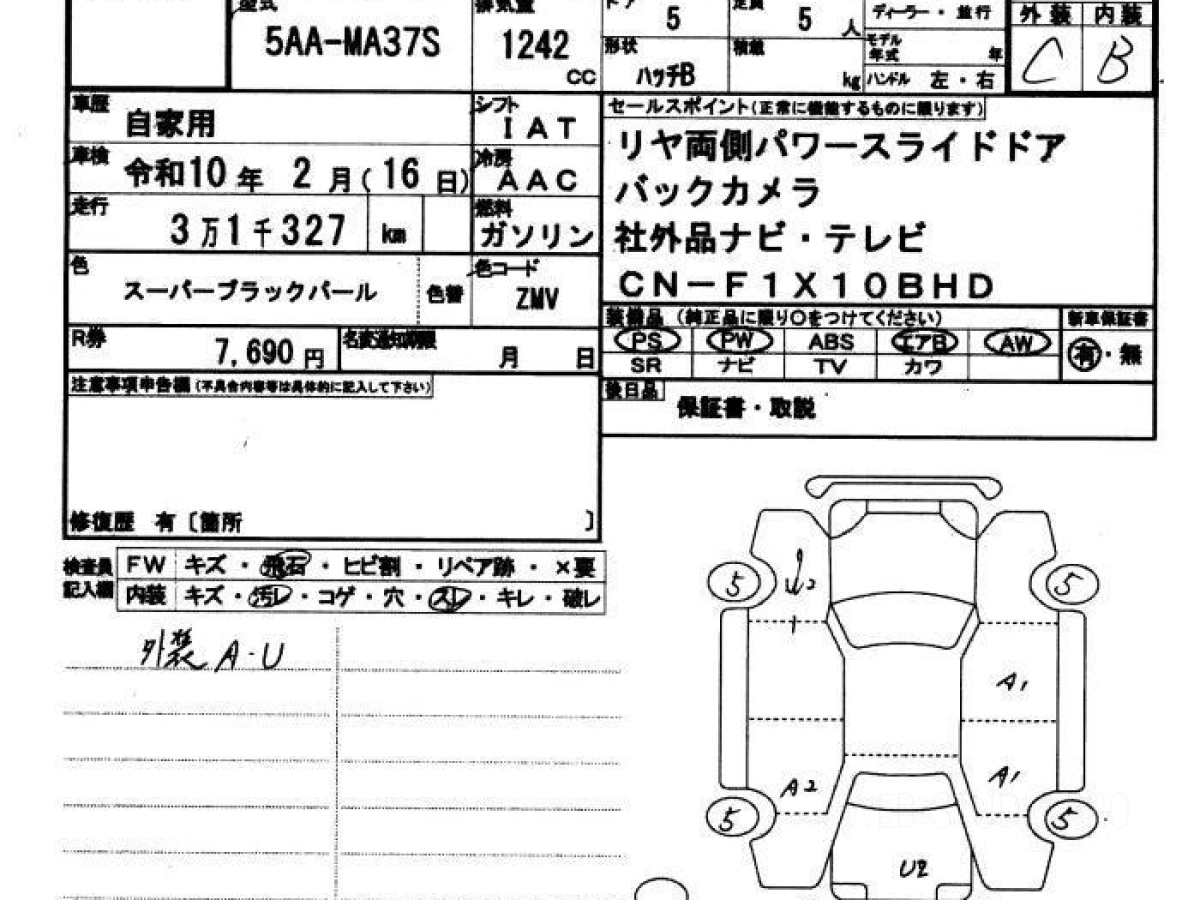 型式
5AA-MA37S
排気量
1242
CC
ドア
5
定員
5 人
形状
ハッチB
積載
kg
ディーラー・並行
モデル年式 年
ハンドル 左・右
外装 内装
C B
車歴
自家用
シフト
IAT
車検
令和10年 2月(16日)
冷房
AAC
走行
3万1千327 km
燃料
ガソリン
色
スーパーブラックパール
色替
色コード
ZMV
R券
7,690円
名変通知期限
月 日
セールスポイント(正常に機能するものに限ります)
リヤ両側パワースライドドア
バックカメラ
社外品ナビ・テレビ
CN-F1X10BHD
装備品 (純正品に限り○をつけてください)
新車保証書
PS PW ABS エアB AW
SR ナビ TV カワ
有・無
後日品
保証書・取説
注意事項申告欄(不具合内容等は具体的に記入して下さい)
修復歴 有〔箇所 〕
検査員記入欄
FW キズ・飛石・ヒビ割・リペア跡・×要
内装 キズ・汚レ・コゲ・穴・スレ・キレ・破レ
外装 A・U
5
5
A1
A2
A1
5
5
U2